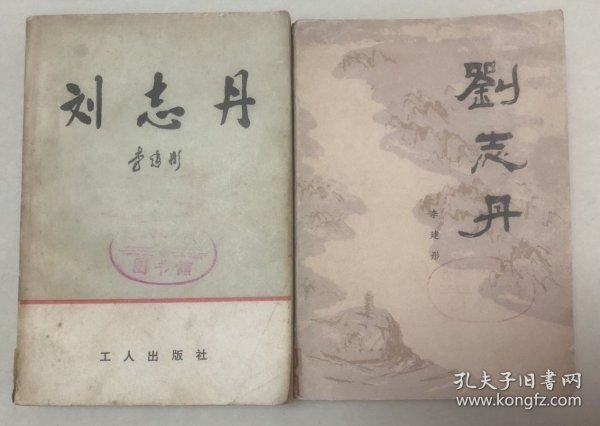 刘志丹
李建彤
图书馆
工人出版社
劉志丹
李建彤
孔夫子旧书网
www.kongfz.com